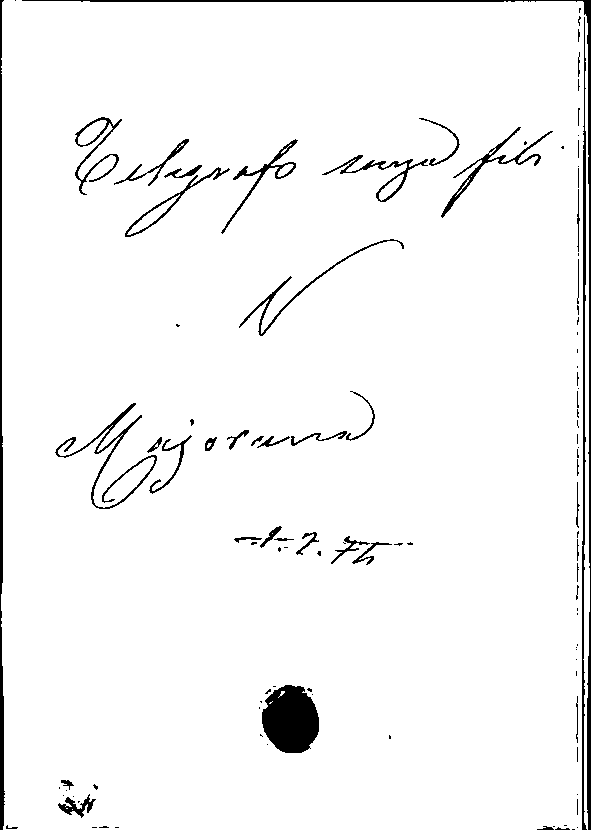 Telegrafo senza fili
V
Majorana